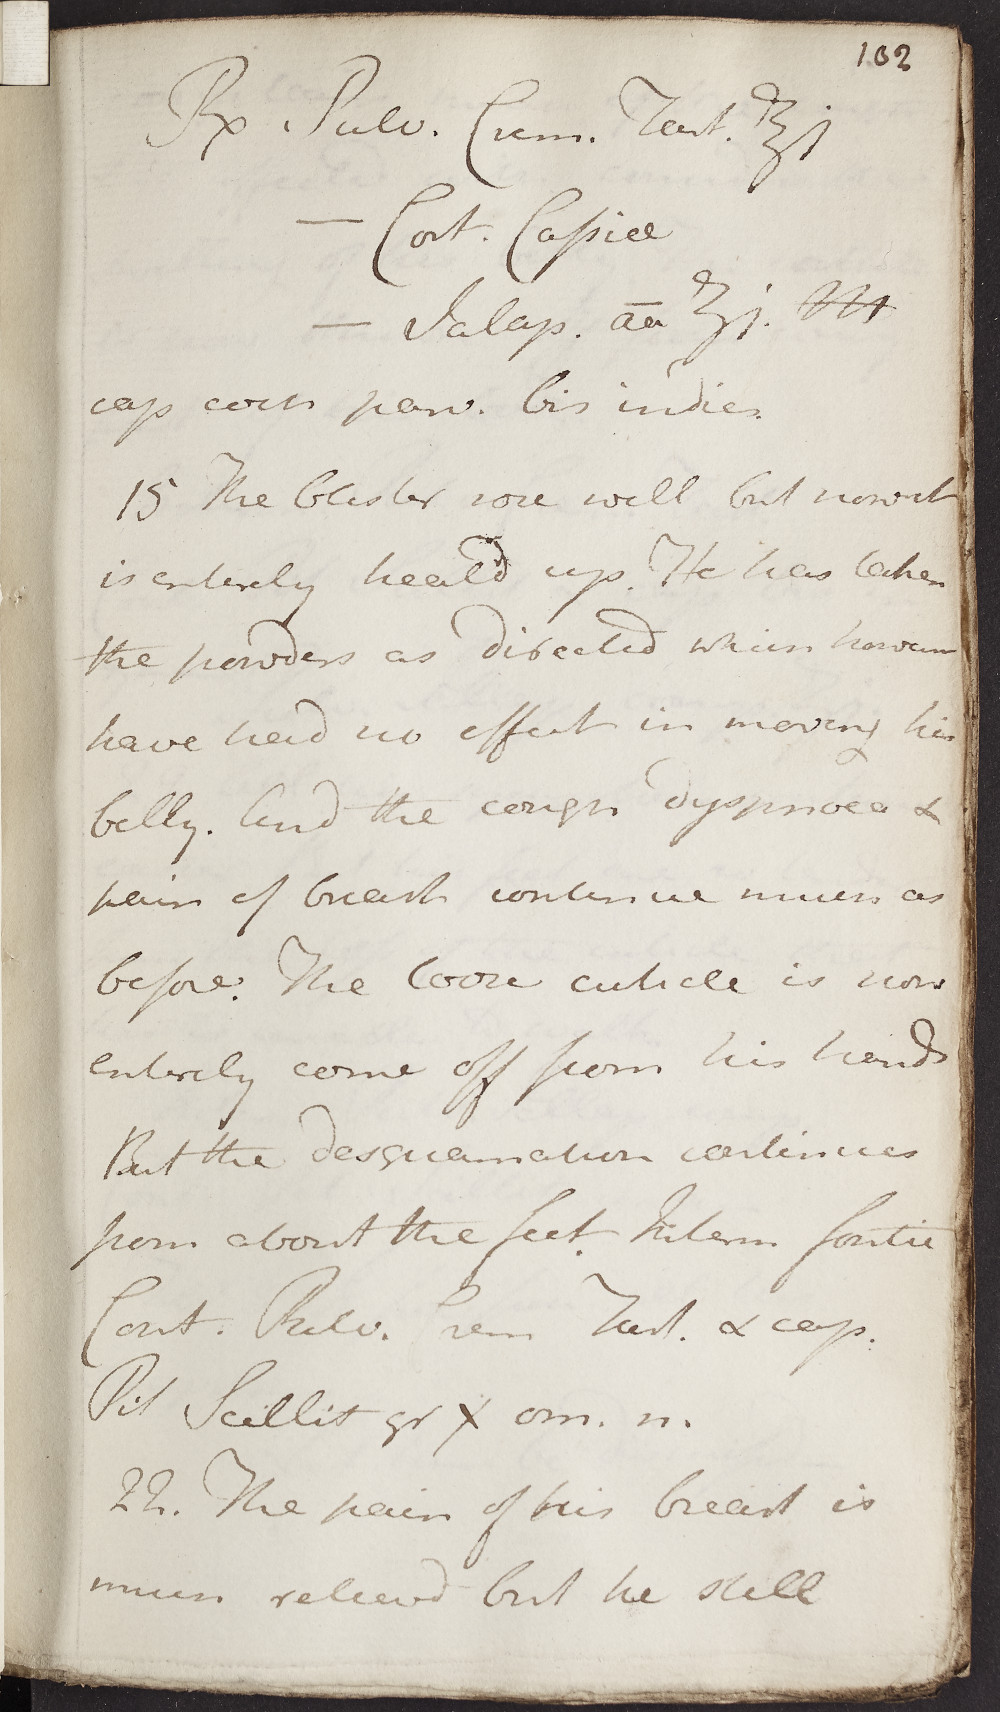 102
Rx Pulv. Crem. Tart. ℥j
— Cort. Cassiee
— Jalap. āa ʒj. M
cap coch parv. bis indies.
15 The blister rose well but now it
is enterely heal'd up. He has taken
the powders as directed which however
have had no effect in moving his
belly. And the cough dyspnoea &
pain of breast continue much as
before. The loose cuticle is now
enterely come off from his hands
But the desquamation continues
from about the feet. Interm fontic
Cont. Pulv. Crem Tart. & cap.
Pil Scillit gr X om. n.
22. The pain of his breast is
much releivd but he still